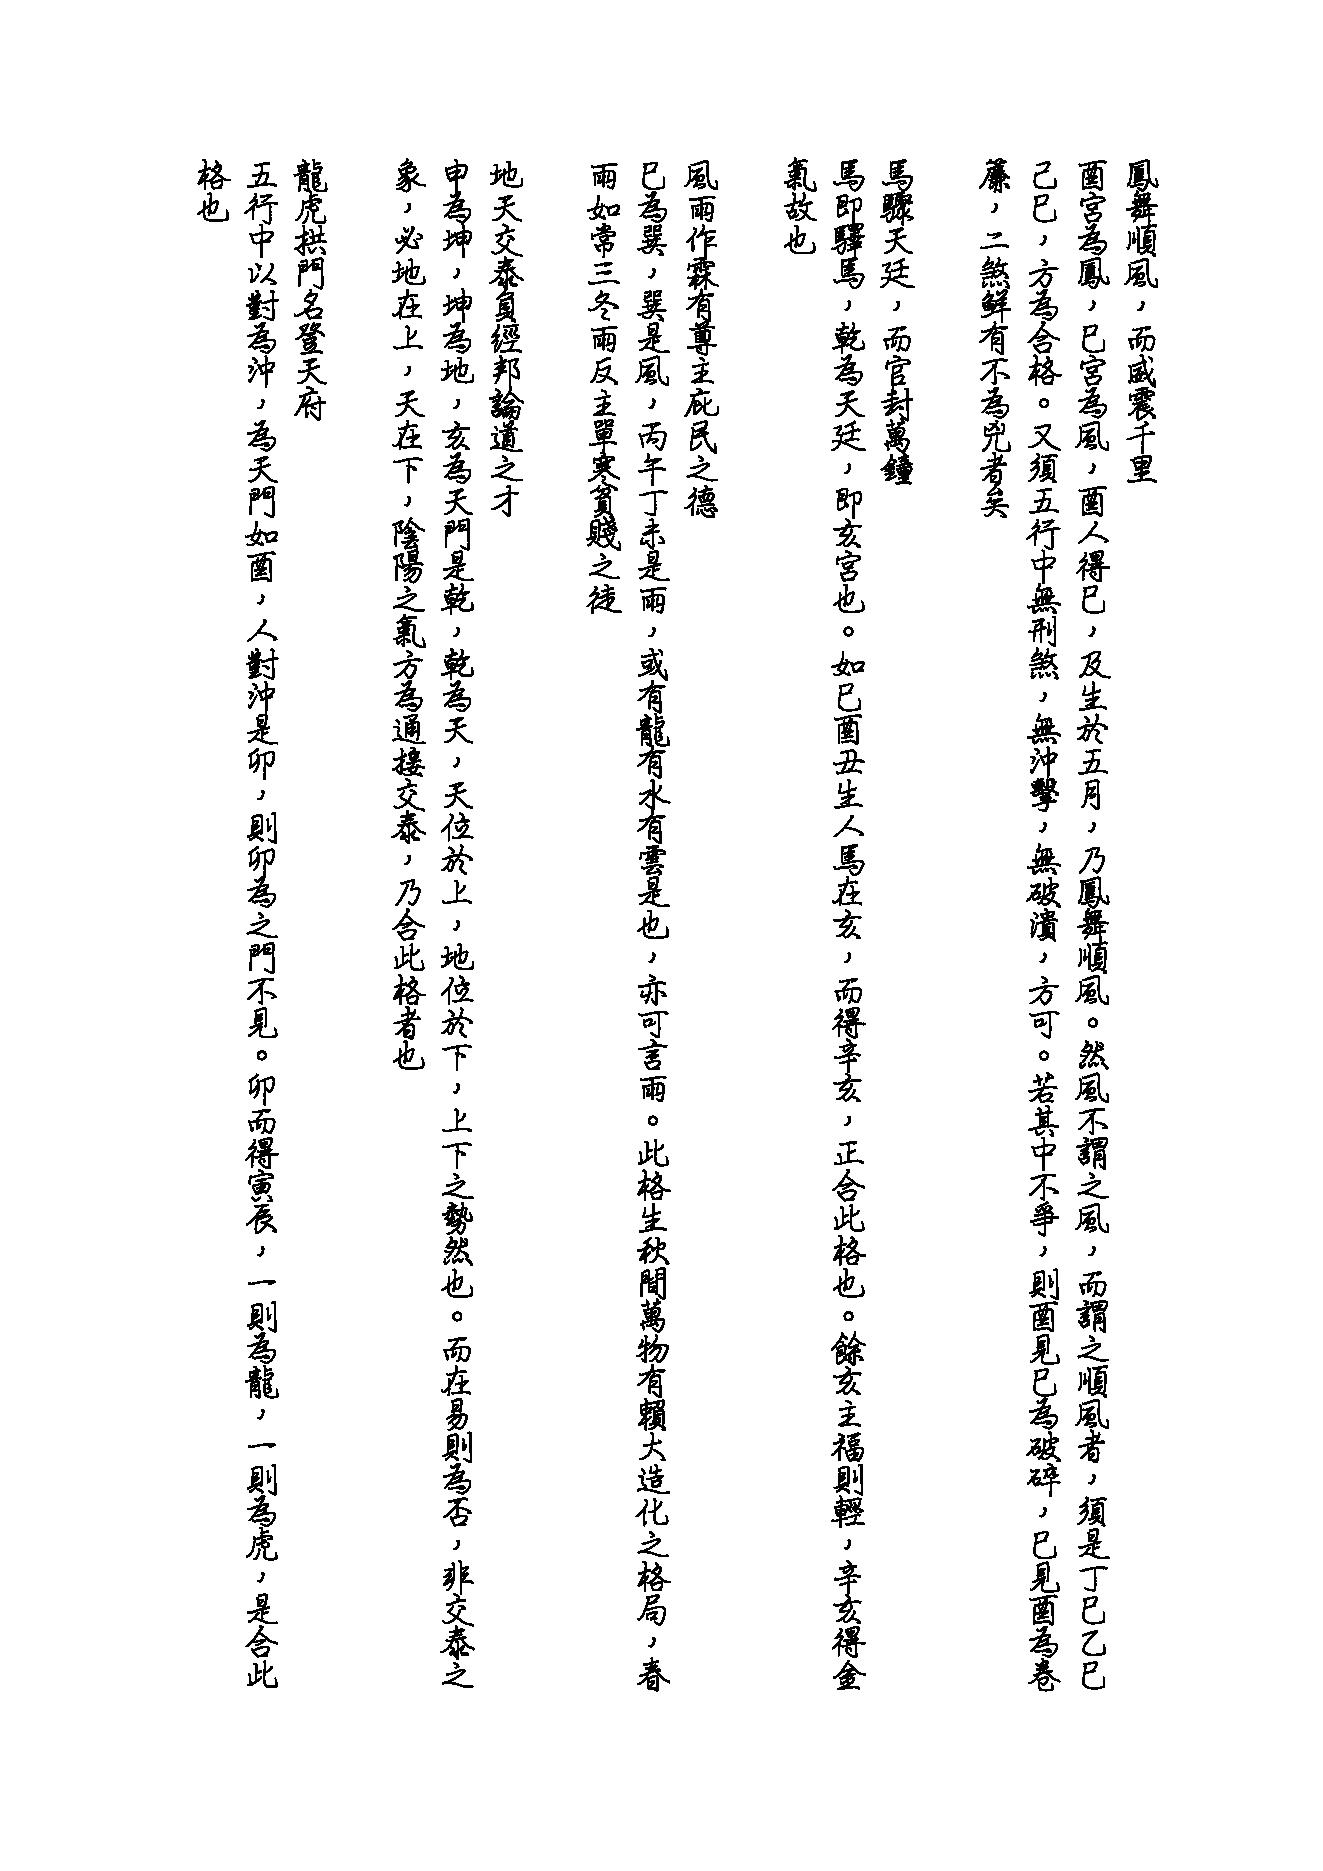 鳳舞順風，而威震千里
酉宮為鳳，巳宮為風，酉人得巳，及生於五月，乃鳳舞順風。然風不謂之風，而謂之順風者，須是丁巳乙巳
己巳，方為合格。又須五行中無刑煞，無沖擊，無破潰，方可。若其中不爭，則酉見巳為破碎，巳見酉為卷
簾，二煞鮮有不為兇者矣
馬驟天廷，而官封萬鐘
馬即驛馬，乾為天廷，即亥宮也。如巳酉丑生人馬在亥，而得辛亥，正合此格也。餘亥主福則輕，辛亥得金
氣故也
風雨作霖有尊主庇民之德
巳為巽，巽是風，丙午丁未是雨，或有龍有水有雲是也，亦可言雨。此格生秋間萬物有賴大造化之格局，春
雨如常三冬雨反主單寒貧賤之徒
地天交泰負經邦論道之才
申為坤，坤為地，亥為天門是乾，乾為天，天位於上，地位於下，上下之勢然也。而在易則為否，非交泰之
象，必地在上，天在下，陰陽之氣方為通接交泰，乃合此格者也
龍虎拱門名登天府
五行中以對為沖，為天門如酉，人對沖是卯，則卯為之門不見。卯而得寅辰，一則為龍，一則為虎，是合此
格也